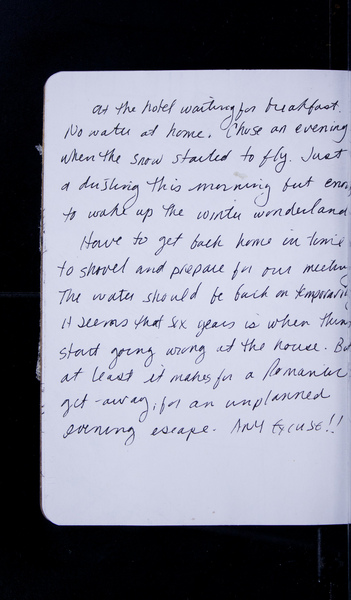 at the hotel waiting for breakfast.
No water at home. Chose an evening
when the snow started to fly. Just
a dusting this morning but enou
to wake up the winter wonderland
Have to get back home in time
to shovel and prepare for our meeting
The water should be back on temporarily
It seems that six years is when thing
start going wrong at the house. But
at least it makes for a Romantic
get-away, for an unplanned
evening escape. ANY EXCUSE!!